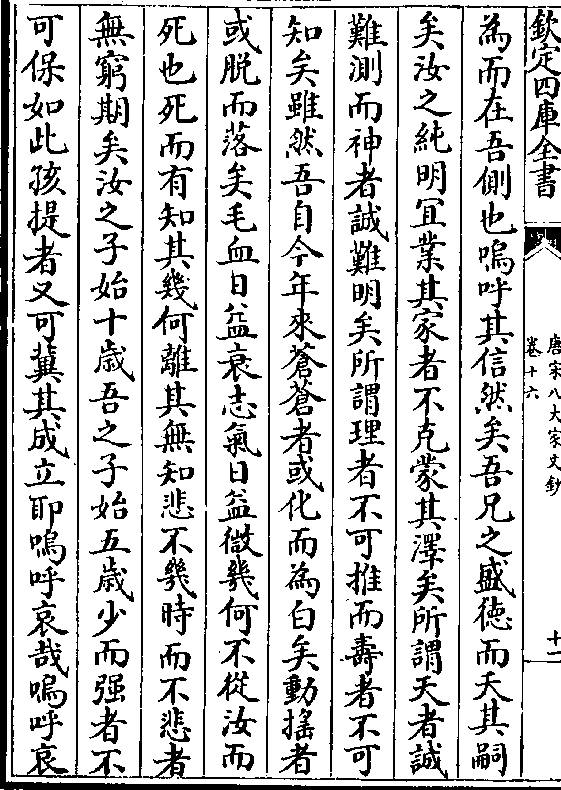 欽定四庫全書
唐宋八大家文鈔
卷十六
十二
為而在吾側也嗚呼其信然矣吾兄之盛德而夭其嗣
矣汝之純明宜業其家者不克蒙其澤矣所謂天者誠
難測而神者誠難明矣所謂理者不可推而壽者不可
知矣雖然吾自今年來蒼蒼者或化而為白矣動搖者
或脱而落矣毛血日益衰志氣日益微幾何不從汝而
死也死而有知其幾何離其無知悲不幾時而不悲者
無窮期矣汝之子始十歲吾之子始五歲少而强者不
可保如此孩提者又可冀其成立耶嗚呼哀哉嗚呼哀